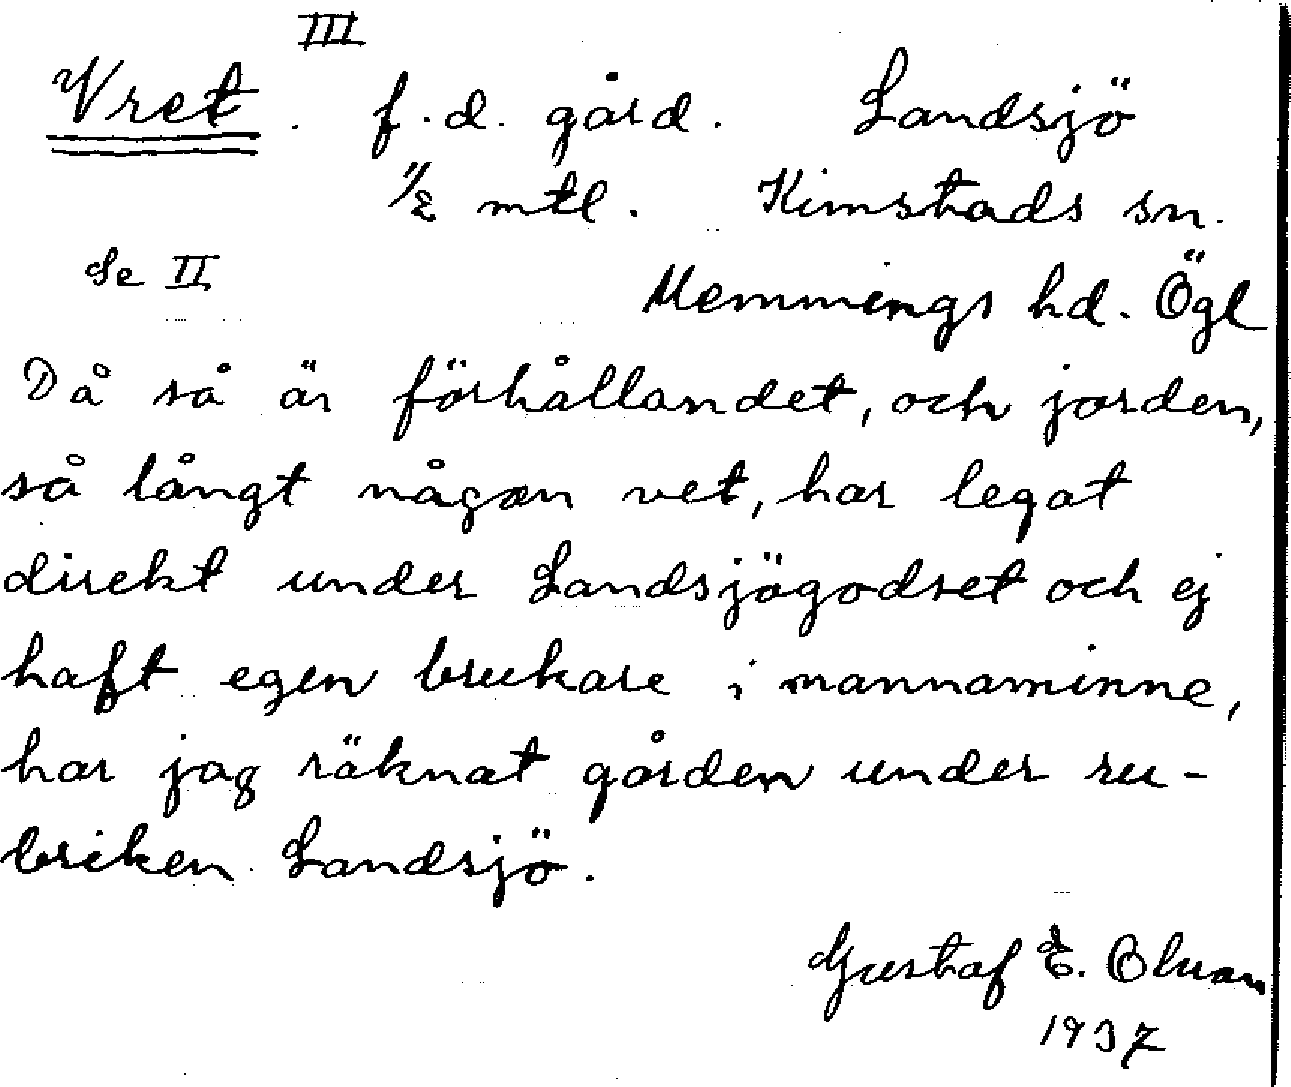 III
Vret. f.d. gård. Landsjö
1/2 mtl. Kimstads sn.
Se II
Memmings hd. Ögl
Då så är förhållandet, och jorden,
så långt någon vet, har legat
direkt under Landsjögodset och ej
haft egen brukare i mannaminne,
har jag räknat gården under ru-
briken Landsjö.
Gustaf E. Olsson
1937